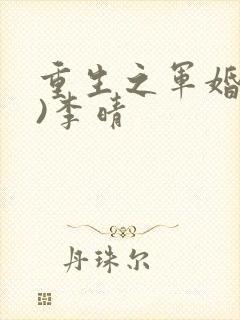 重生之军婚
)李晴
丹珠尔